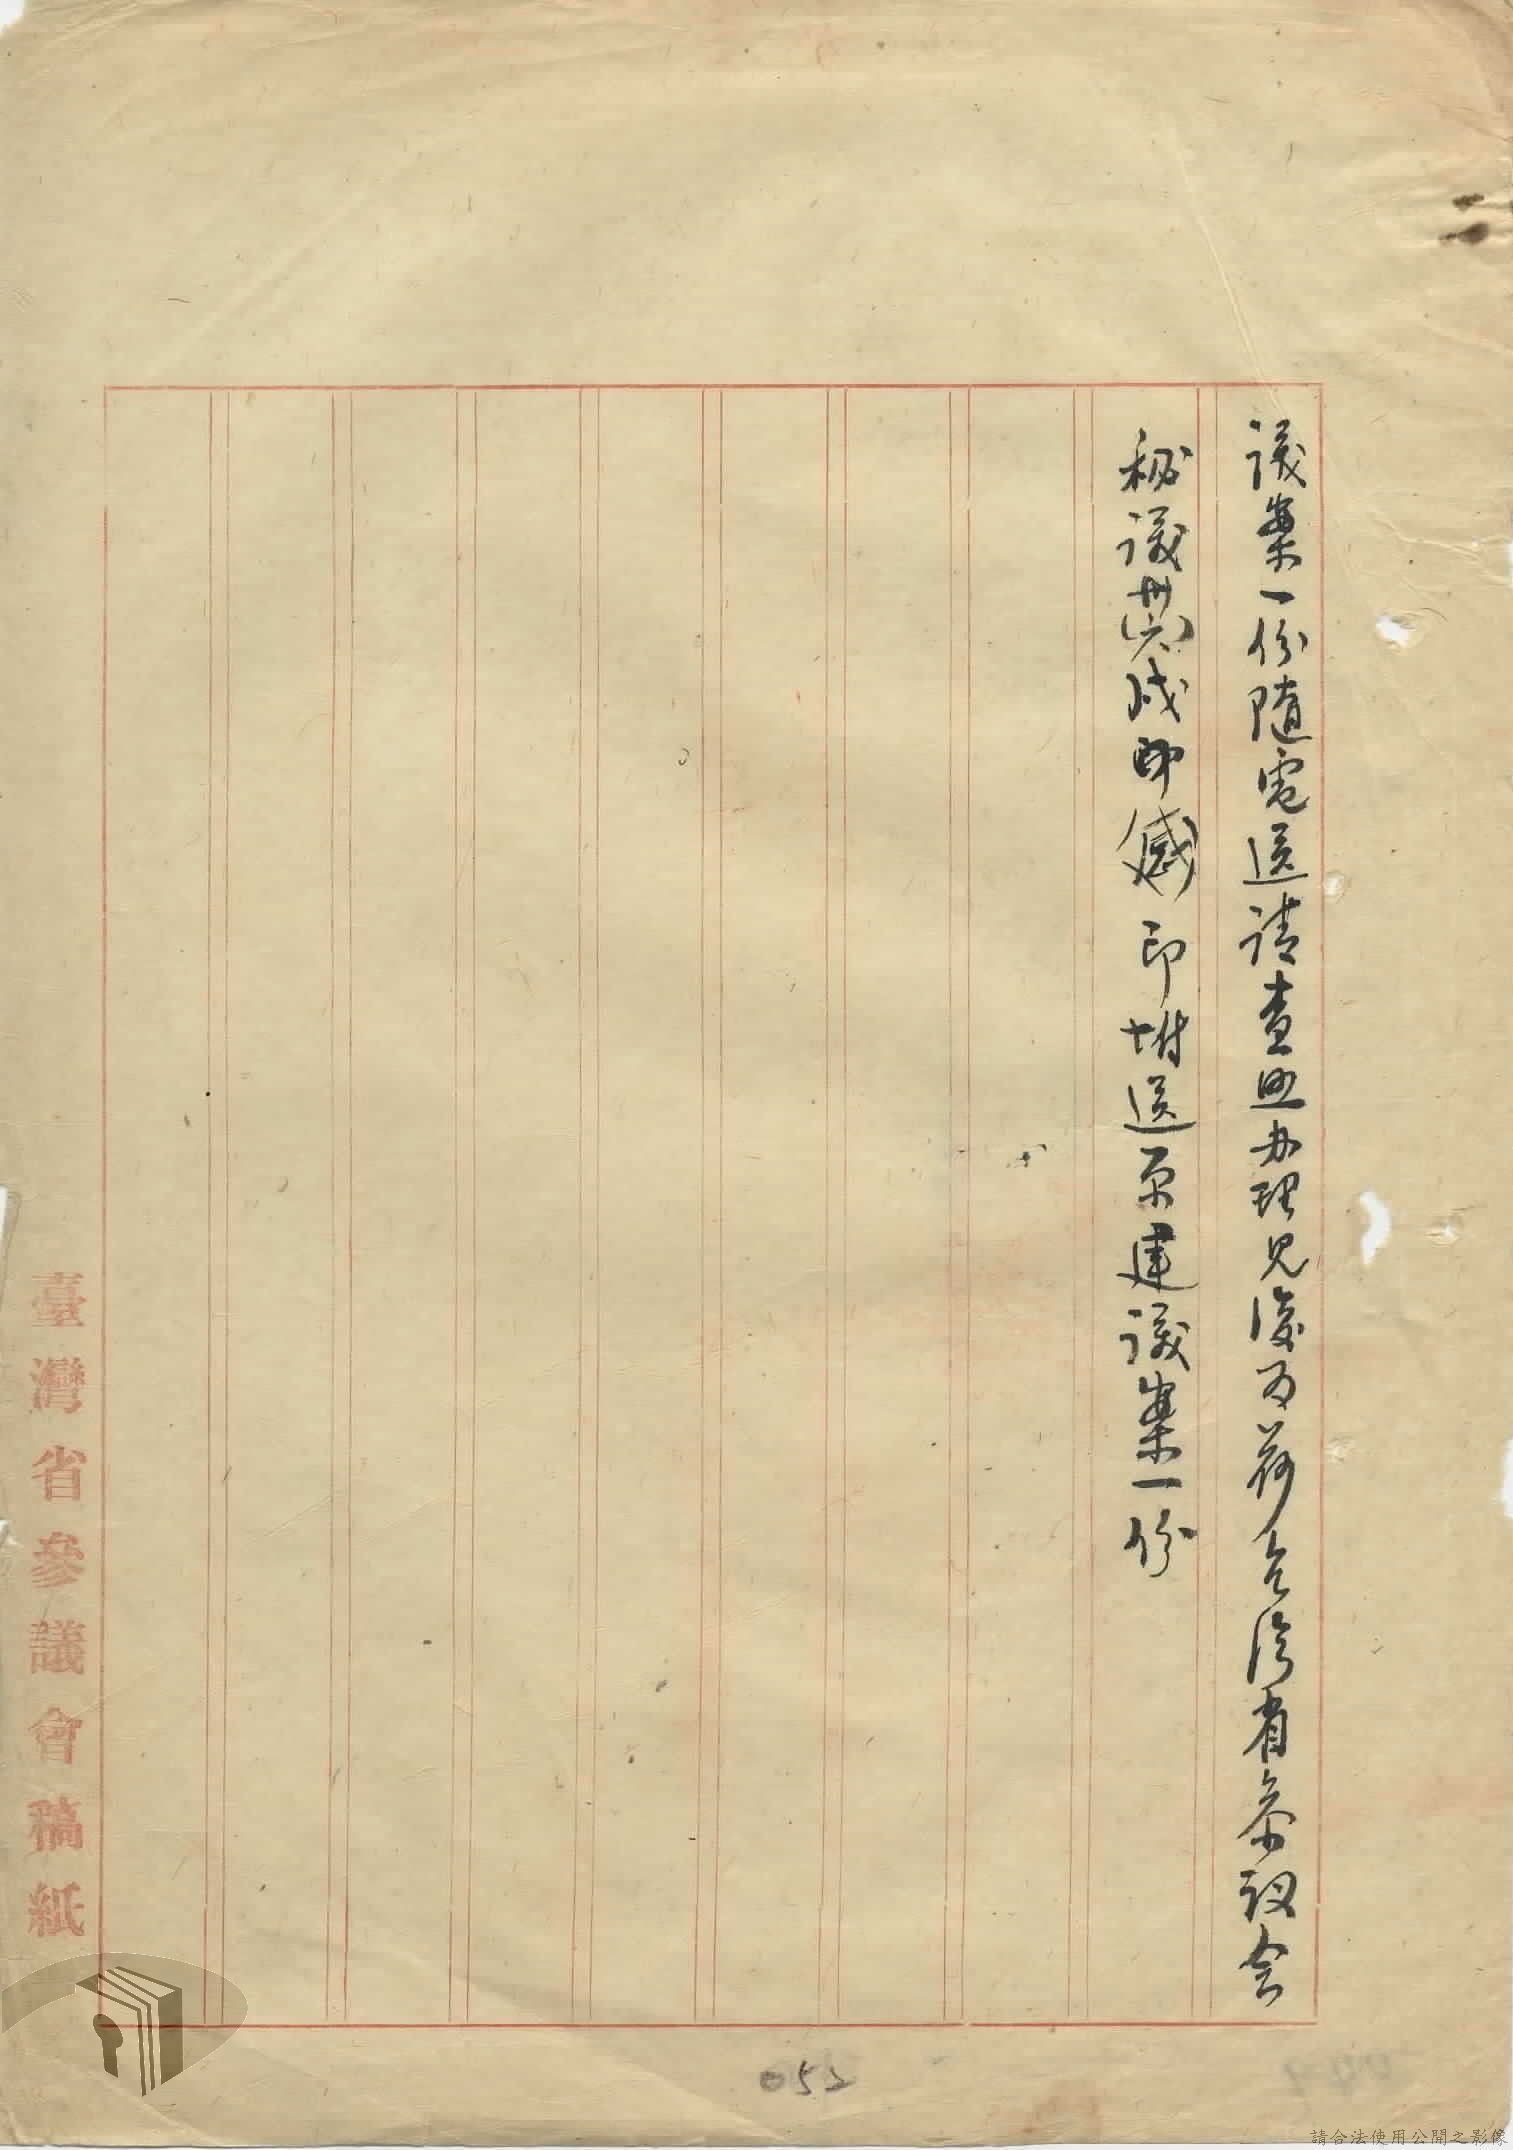 議案一份随電送请查照办理見復为荷台湾省参议会
秘議卅六戌 感印附送原建議案一份
臺灣省參議會稿紙
052
請合法使用公開之影像